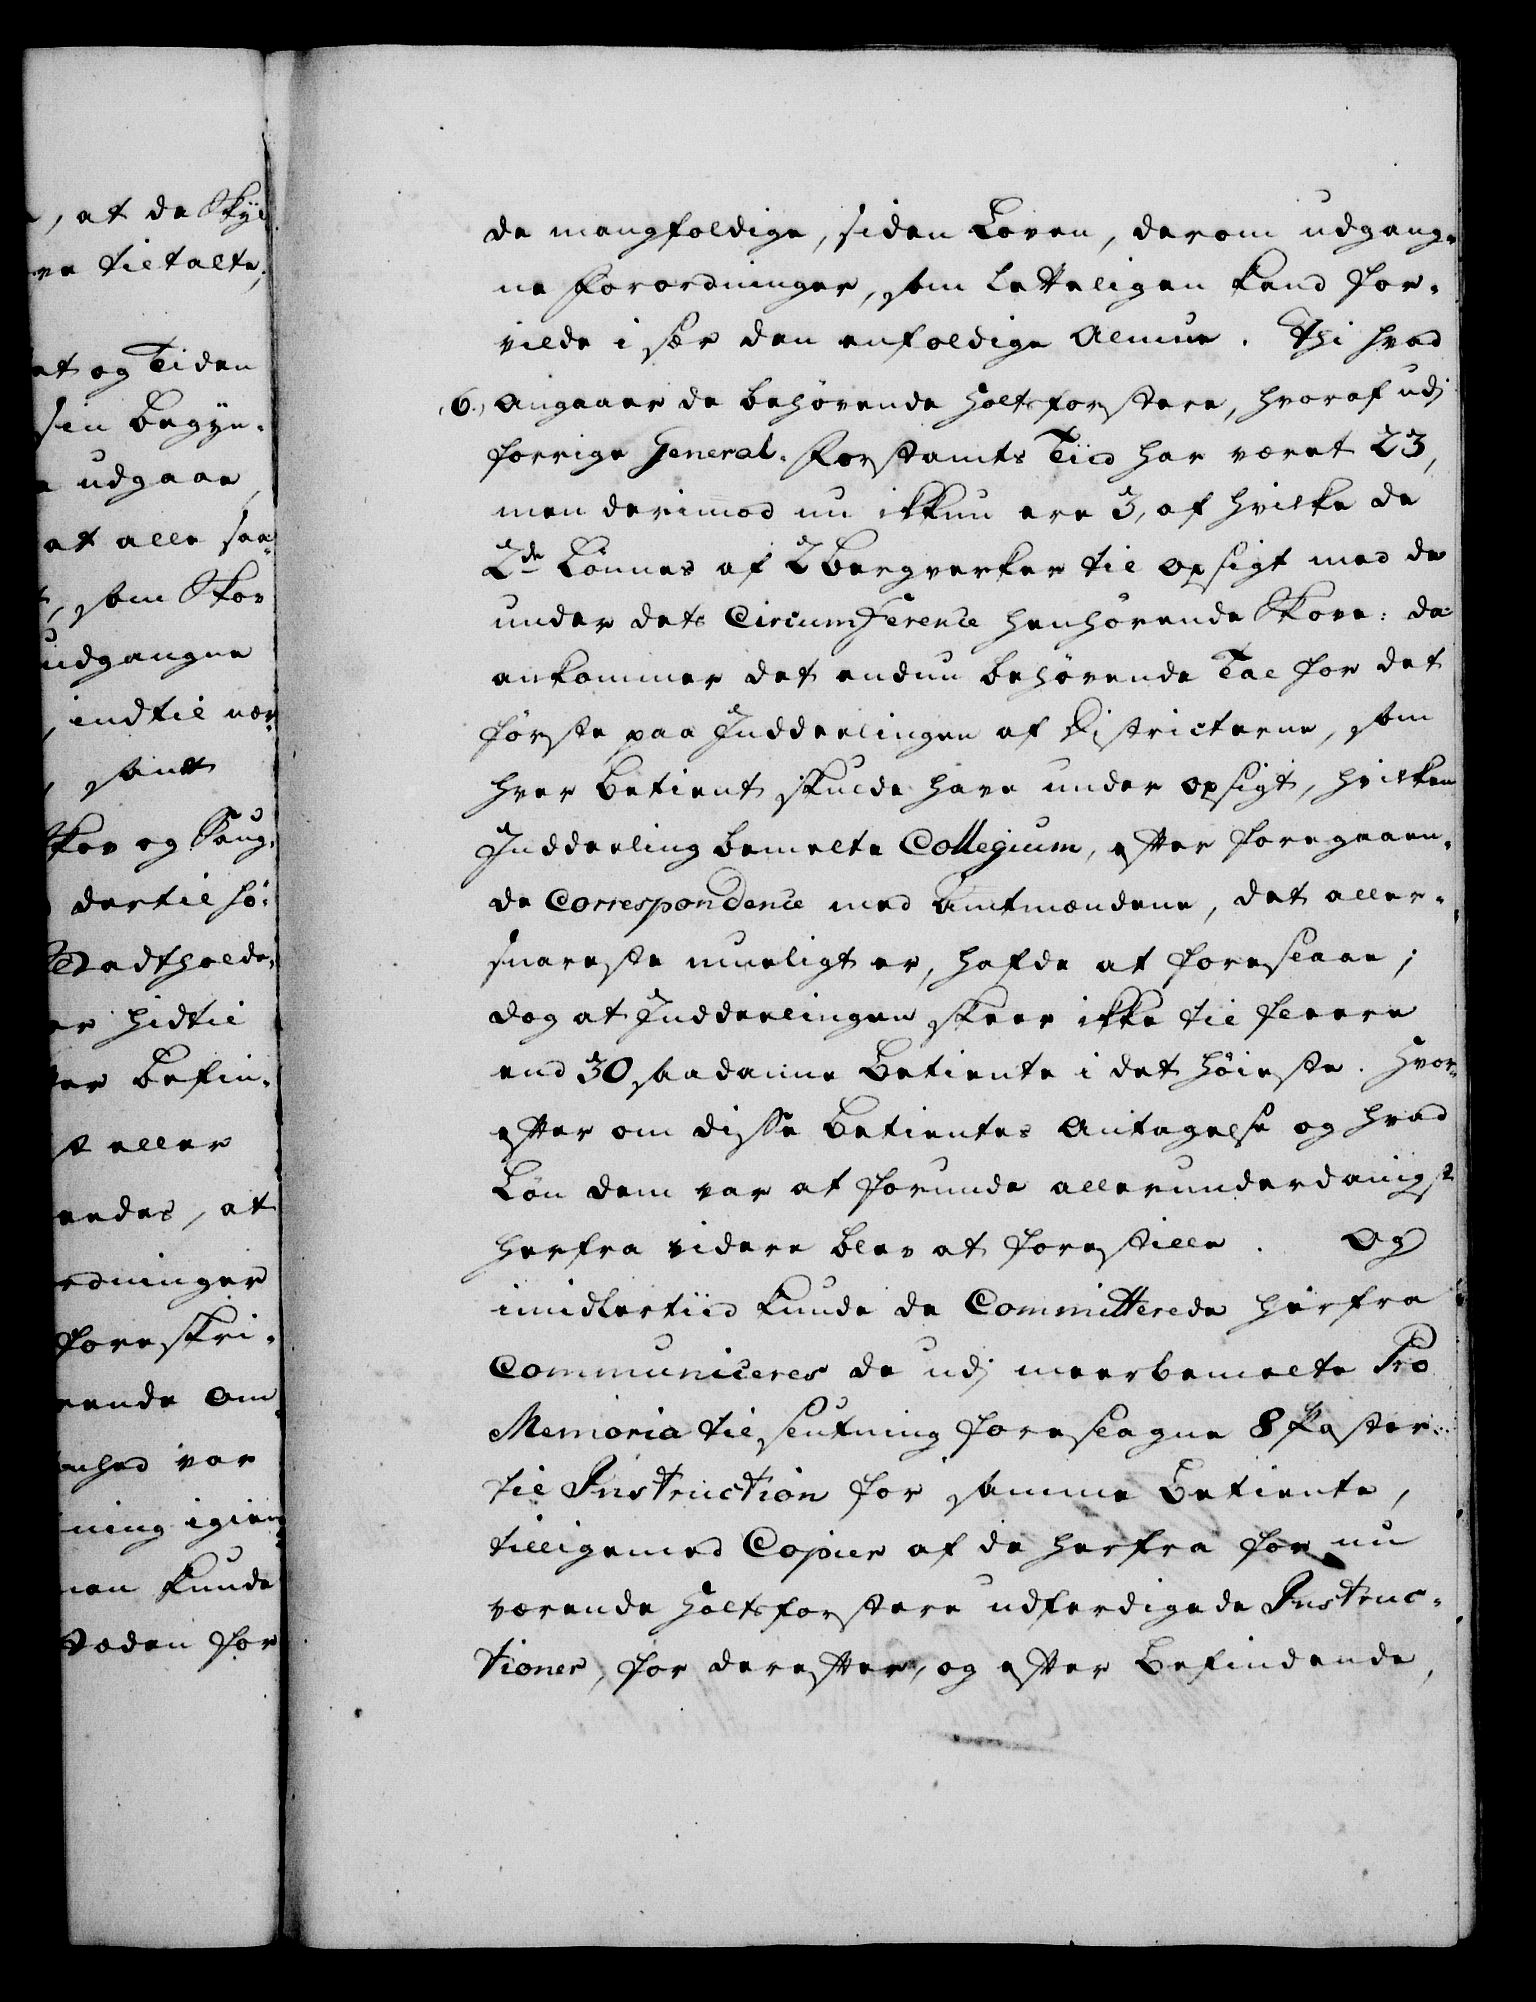 , at de Skyl
ve tiltalte;
et og Tiden
sin begyn-
e udgaae,
at alle saa-
t, som Skov
udgangne
, indtil nær-
, samt
Skov og Saug-
dertil hö-
Stadtholde-
er hidtil
ter befin-
st eller
endes, at
rdninger
foreskri-
eende om
enhed var
ning igien-
man kunde
Stæden for
de mangfoldige, siden Loven, derom udgang-
ne Forordninger, som letteligen kand for-
vilde i sær den enfoldige Almue. Thi hvad
(6.) angaaer de behövende Holtsförstere, hvoraf udj
forrige General-Forstamts Tiid har været 23,
men derimod nu ikkun ere 3, af hvilke de
2de Lönnes af 2 bergverker til opsigt med de
under dets Circumference henhörende Skove: da
ankommer det endnu behövende Tal for det
förste paa Inddeelingen af Districterne, som
hver betient skulde have under opsigt, hvilken
Inddeeling bemelte Collegium, efter foregaaen-
de Correspondence med Amtmændene, det aller-
snareste mueligt er, hafde at foreslaae;
dog at Inddeelingen skeer ikke til fleere
end 30 saadanne Betiente i det höieste. Hvor-
efter om disse betientes Antagelse og hvad
Lön dem var at forunde allerunderdanigst
herfra videre blev at forestille. Og
imidlertiid kunde de Committerede herfra
Communiceres de udj meerbemelte Pro
Memoria til slutning foreslagne 8 Poster
til Instruction for samme Betiente,
tilligemed Copier af de herfra for nu
værende Holtsförstere udferdigede Instruc-
tioner, for derefter, og efter Befindende,